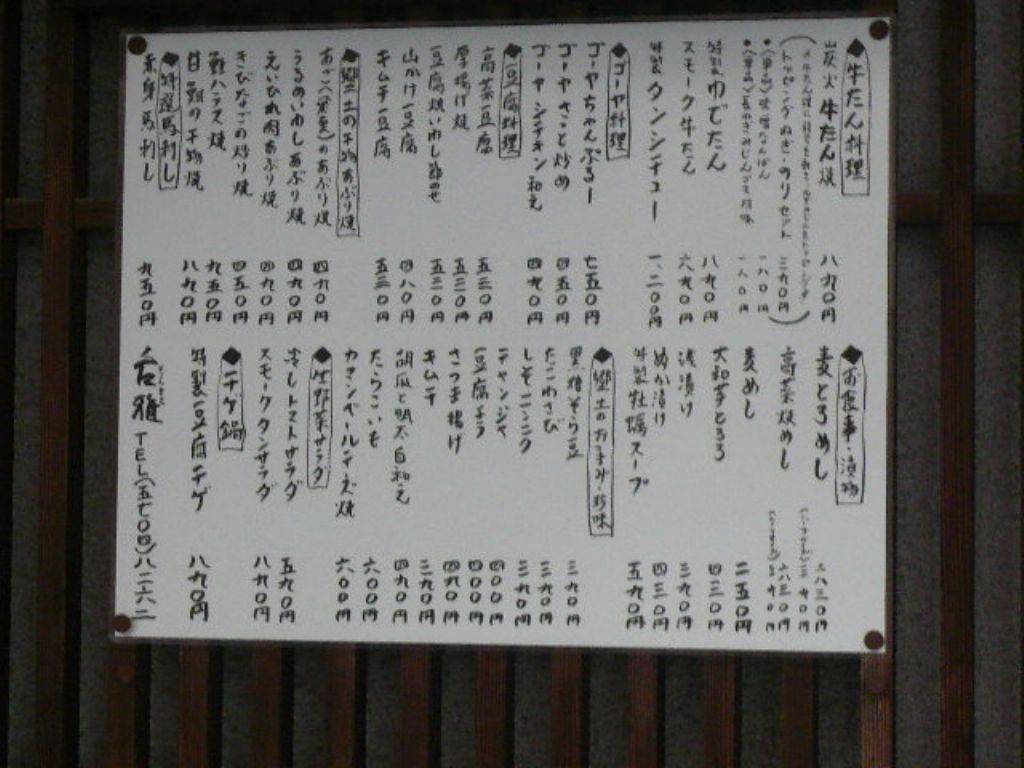 ◆牛たん料理
炭火牛たん焼 八九〇円
トッピングねぎ・のりセット 三九〇円)
特製ゆでたん 八九〇円
スモーク牛たん 六九〇円
特製タンシチュー 一、二〇〇円
◆ゴーヤ料理
ゴーヤちゃんぷるー 七五〇円
ゴーヤささと炒め 四五〇円
ゴーヤシーチキン和え 四九〇円
◆豆腐料理
高菜豆腐 五三〇円
厚揚げ焼 五三〇円
豆腐焼いわし節のせ 五三〇円
山かけ豆腐 四八〇円
キムチ豆腐 五三〇円
◆郷土の干物・あぶり焼
あご(飛魚)のあぶり焼 四九〇円
うるめいわしあぶり焼 四九〇円
えいひれ肉あぶり焼 四九〇円
きびなごの炒り焼 四五〇円
鮭ハラス焼 九五〇円
甘鯛の干物焼 八九〇円
◆特選馬刺し
赤身馬刺し 九五〇円
◆お食事・漬物
麦とろめし 八三〇円
高菜炊めし 六三〇円
麦めし 二五〇円
大和芋とろろ 四三〇円
浅漬け 三九〇円
ぬか漬け 四三〇円
特製牡蠣スープ 五九〇円
◆郷土のおつまみ・珍味
黒糖そら豆 三九〇円
たこわさび 三九〇円
しそニンニク 三九〇円
チャンジャ 四〇〇円
豆腐よう 四〇〇円
さつま揚げ 四九〇円
キムチ 三九〇円
胡瓜と明太子和え 四九〇円
たらこいも 六〇〇円
カマンベールチーズ焼 六〇〇円
◆生野菜サラダ
冷しトマトサラダ 五九〇円
スモークタンサラダ 八九〇円
◆チゲ鍋
特製豆腐チゲ 八九〇円
TEL(五七〇四)八二六二